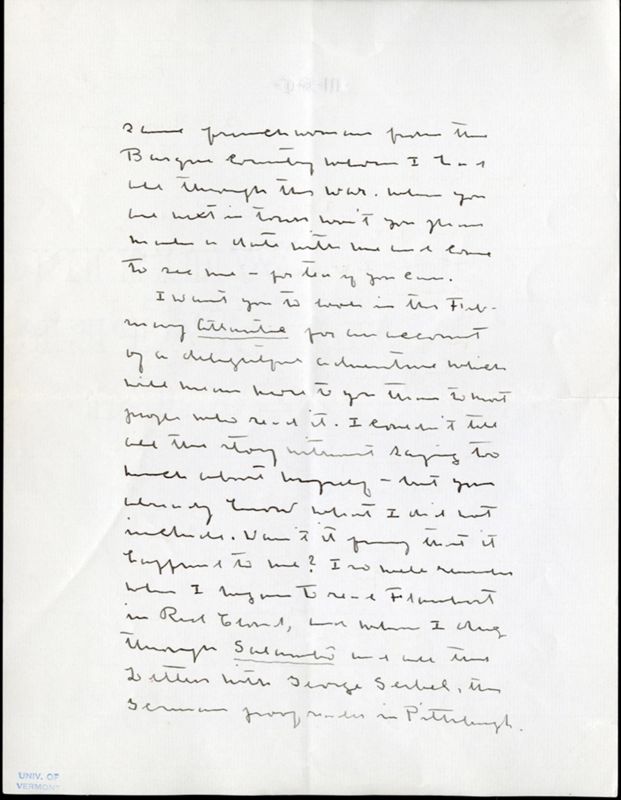 same frenchwoman from the
Basque Country whom I had
all through the war. When you
are next in town won't you please
make a date with me and come
to see me - for tea if you can.
I want you to look in the Feb-
ruary Atlantic for an account
of a delightful adventure which
will mean more to you than to most
people who read it. I couldn't tell
all the story without saying too
much about myself - but you
already know what I did not
include. Wasn't it funny that it
happened to me? I so well remember
when I began to read Flaubert
in Red Cloud, and when I dug
through Salambô and all the
Letters with George Seibel, the
German proof reader in Pittsburgh.
UNIV. OF
VERMONT